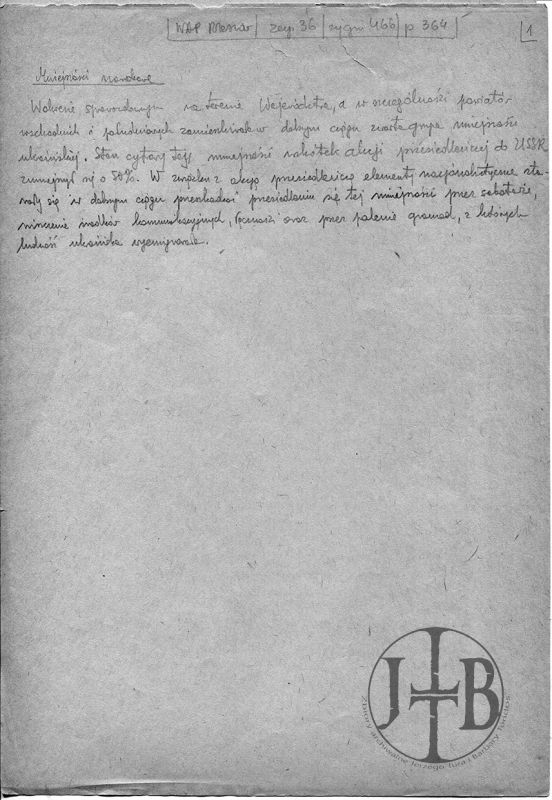 WAP Rzeszów / zesp. 36 / sygn 466 / p 364
1
Mniejszości narodowe
W okresie sprawozdawczym na terenie Województwa, a w szczególności powiatów
wschodnich i południowych zamieszkiwała w dalszym ciągu zwarta grupa mniejszości
ukraińskiej. Stan cyfrowy tejj mniejszości na skutek akcji przesiedleńczej do USSR
zmniejszył się o 50%. W związku z akcją przesiedleńczą elementy nacjonalistyczne sta-
rały się w dalszym ciągu przeszkadzać przesiedlaniu się tej mniejszości przez sabotaże,
niszczenie środków komunikacyjnych, łączności oraz przez palenie gromad, z których
ludność ukraińska wyemigrowała.
JTB
Zbiory archiwalne Jerzego Tura i Barbary Tondos